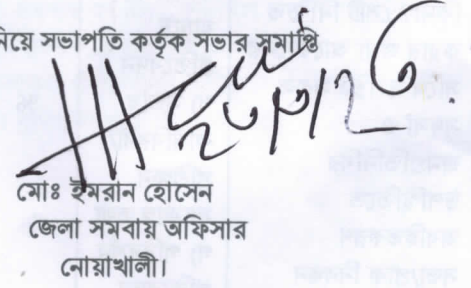 নিয়ে সভাপতি কর্তৃক সভার সমাপ্তি
মোঃ ইমরান হোসেন
জেলা সমবায় অফিসার
নোয়াখালী।